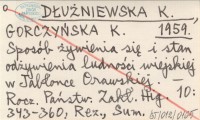 DŁUŻNIEWSKA K.,
GORCZYŃSKA K. 1959.
Sposób żywienia się i stan
odżywienia ludności wiejskiej
w Jabłonce Orawskiej. —
Rocz. Państw. Zakł. Hig. 10:
343-360, Rez., Sum.